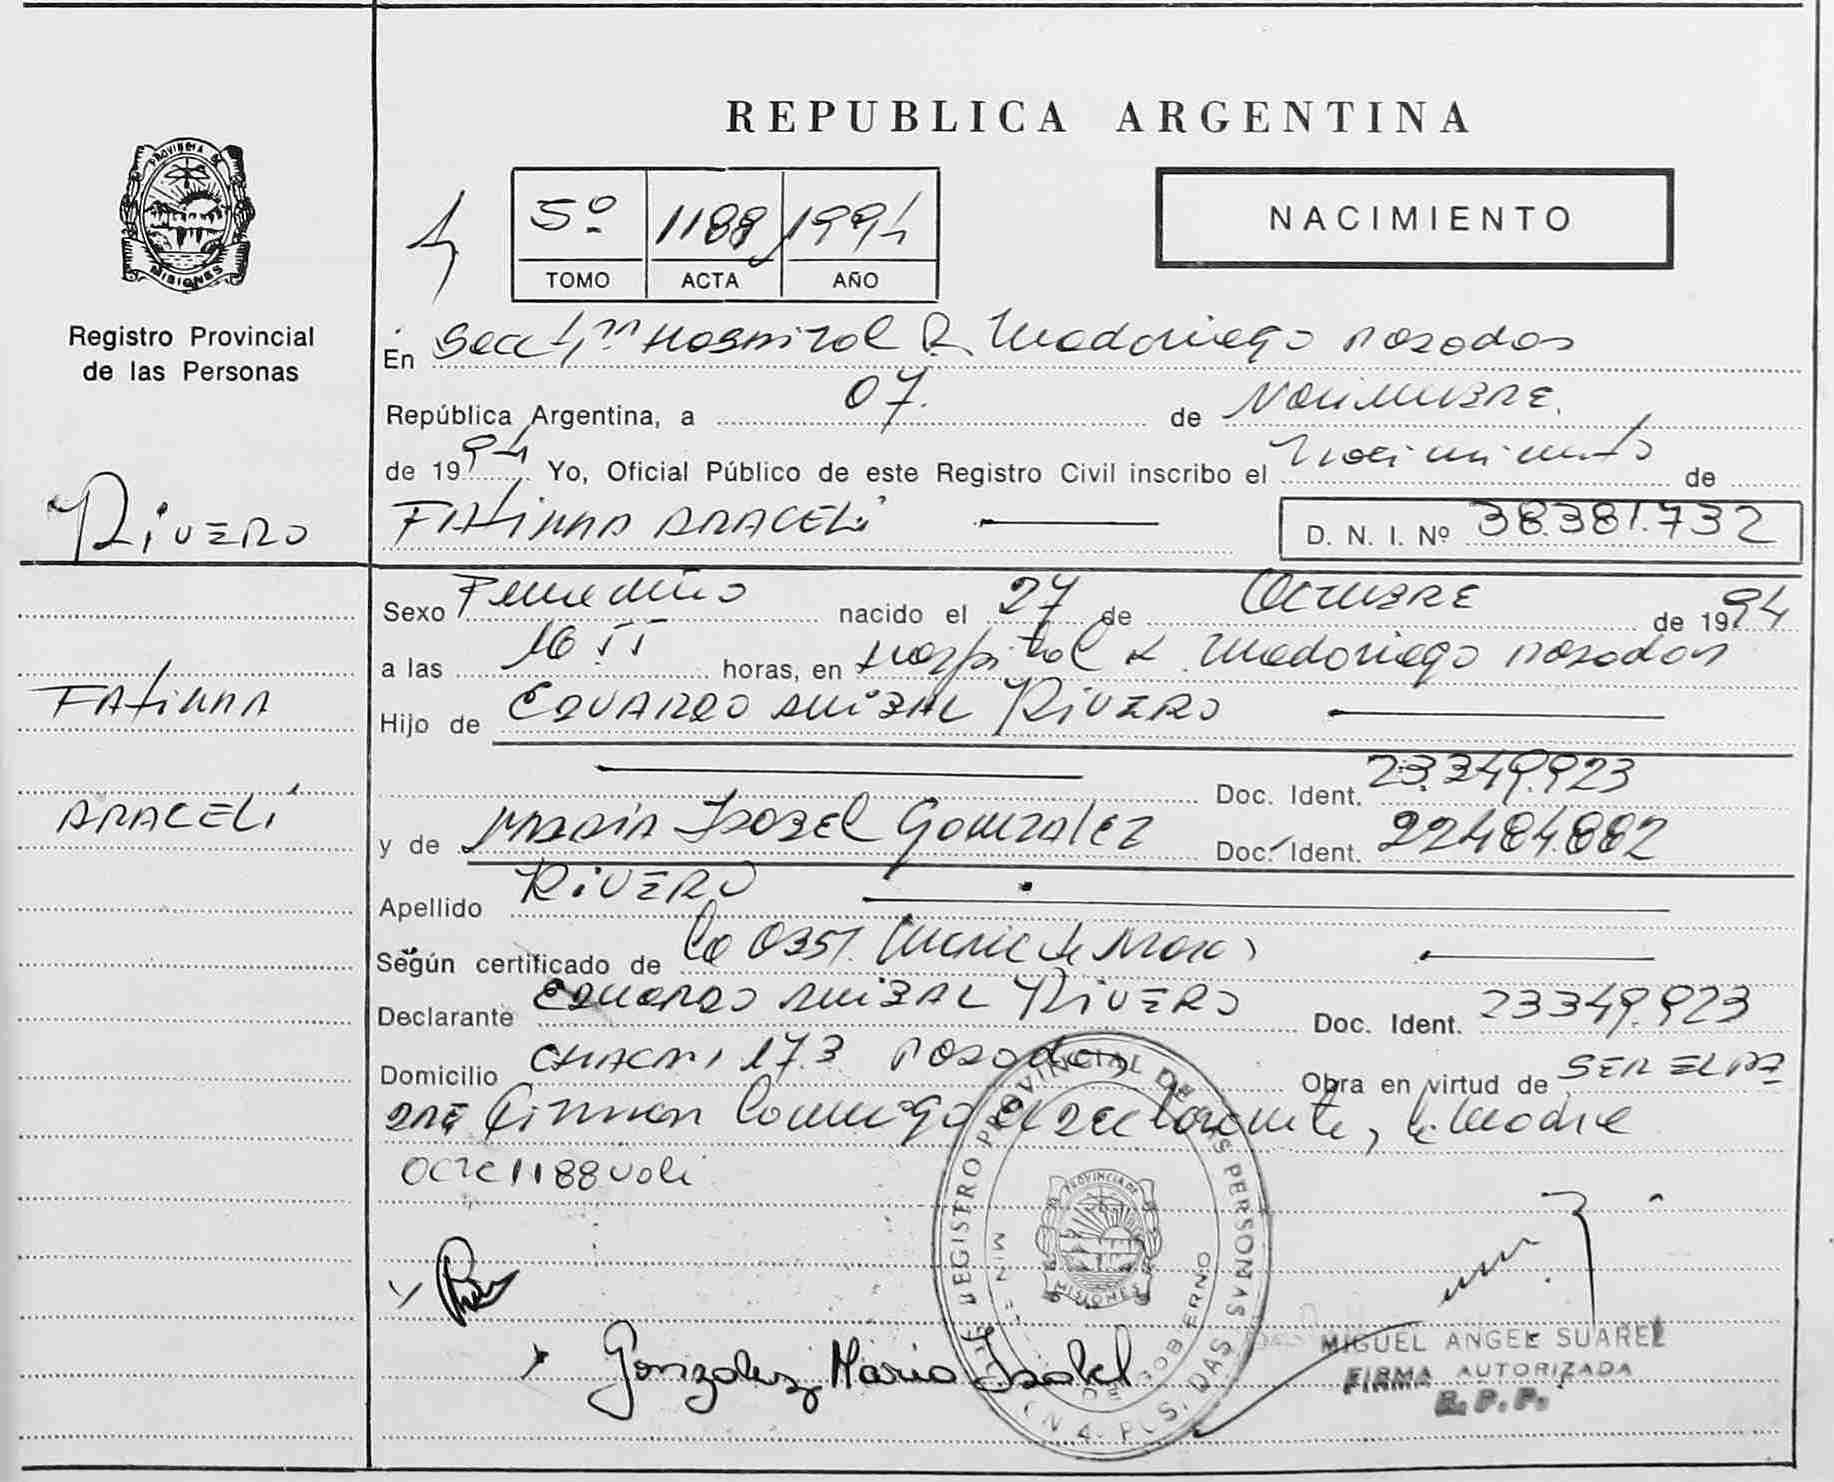 REPUBLICA ARGENTINA
PROVINCIA DE
MISIONES
Registro Provincial
de las Personas
5º 1188 1994
TOMO ACTA AÑO
NACIMIENTO
En Secc 4ta Hospital R. Madariaga Posadas
República Argentina, a 07. de NOVIEMBRE.
de 1994 Yo, Oficial Público de este Registro Civil inscribo el Nacimiento de
RIVERO
FATIMA ARACELI
D. N. I. Nº 38.381.732
Sexo Femenino nacido el 27 de OCTUBRE de 1994
a las 16 horas, en Hospital R. Madariaga Posadas
FATIMA
Hijo de EDUARDO ANIBAL RIVERO
Doc. Ident. 23.349.923
ARACELI
y de MARIA ISABEL GONZALEZ Doc. Ident. 22484.882
Apellido RIVERO
Según certificado de La Obst.
Declarante EDUARDO ANIBAL RIVERO Doc. Ident. 23349.923
Domicilio CHACRA 173 Posadas Obra en virtud de SER EL PA
DRE Firman Conmigo el declarante, la Madre
Acta 1188 vale
REGISTRO PROVINCIAL DE LAS PERSONAS
PROVINCIA DE
MISIONES
Gonzalez Maria Isabel
MIGUEL ANGEL SUAREZ
FIRMA AUTORIZADA
R. P. P.